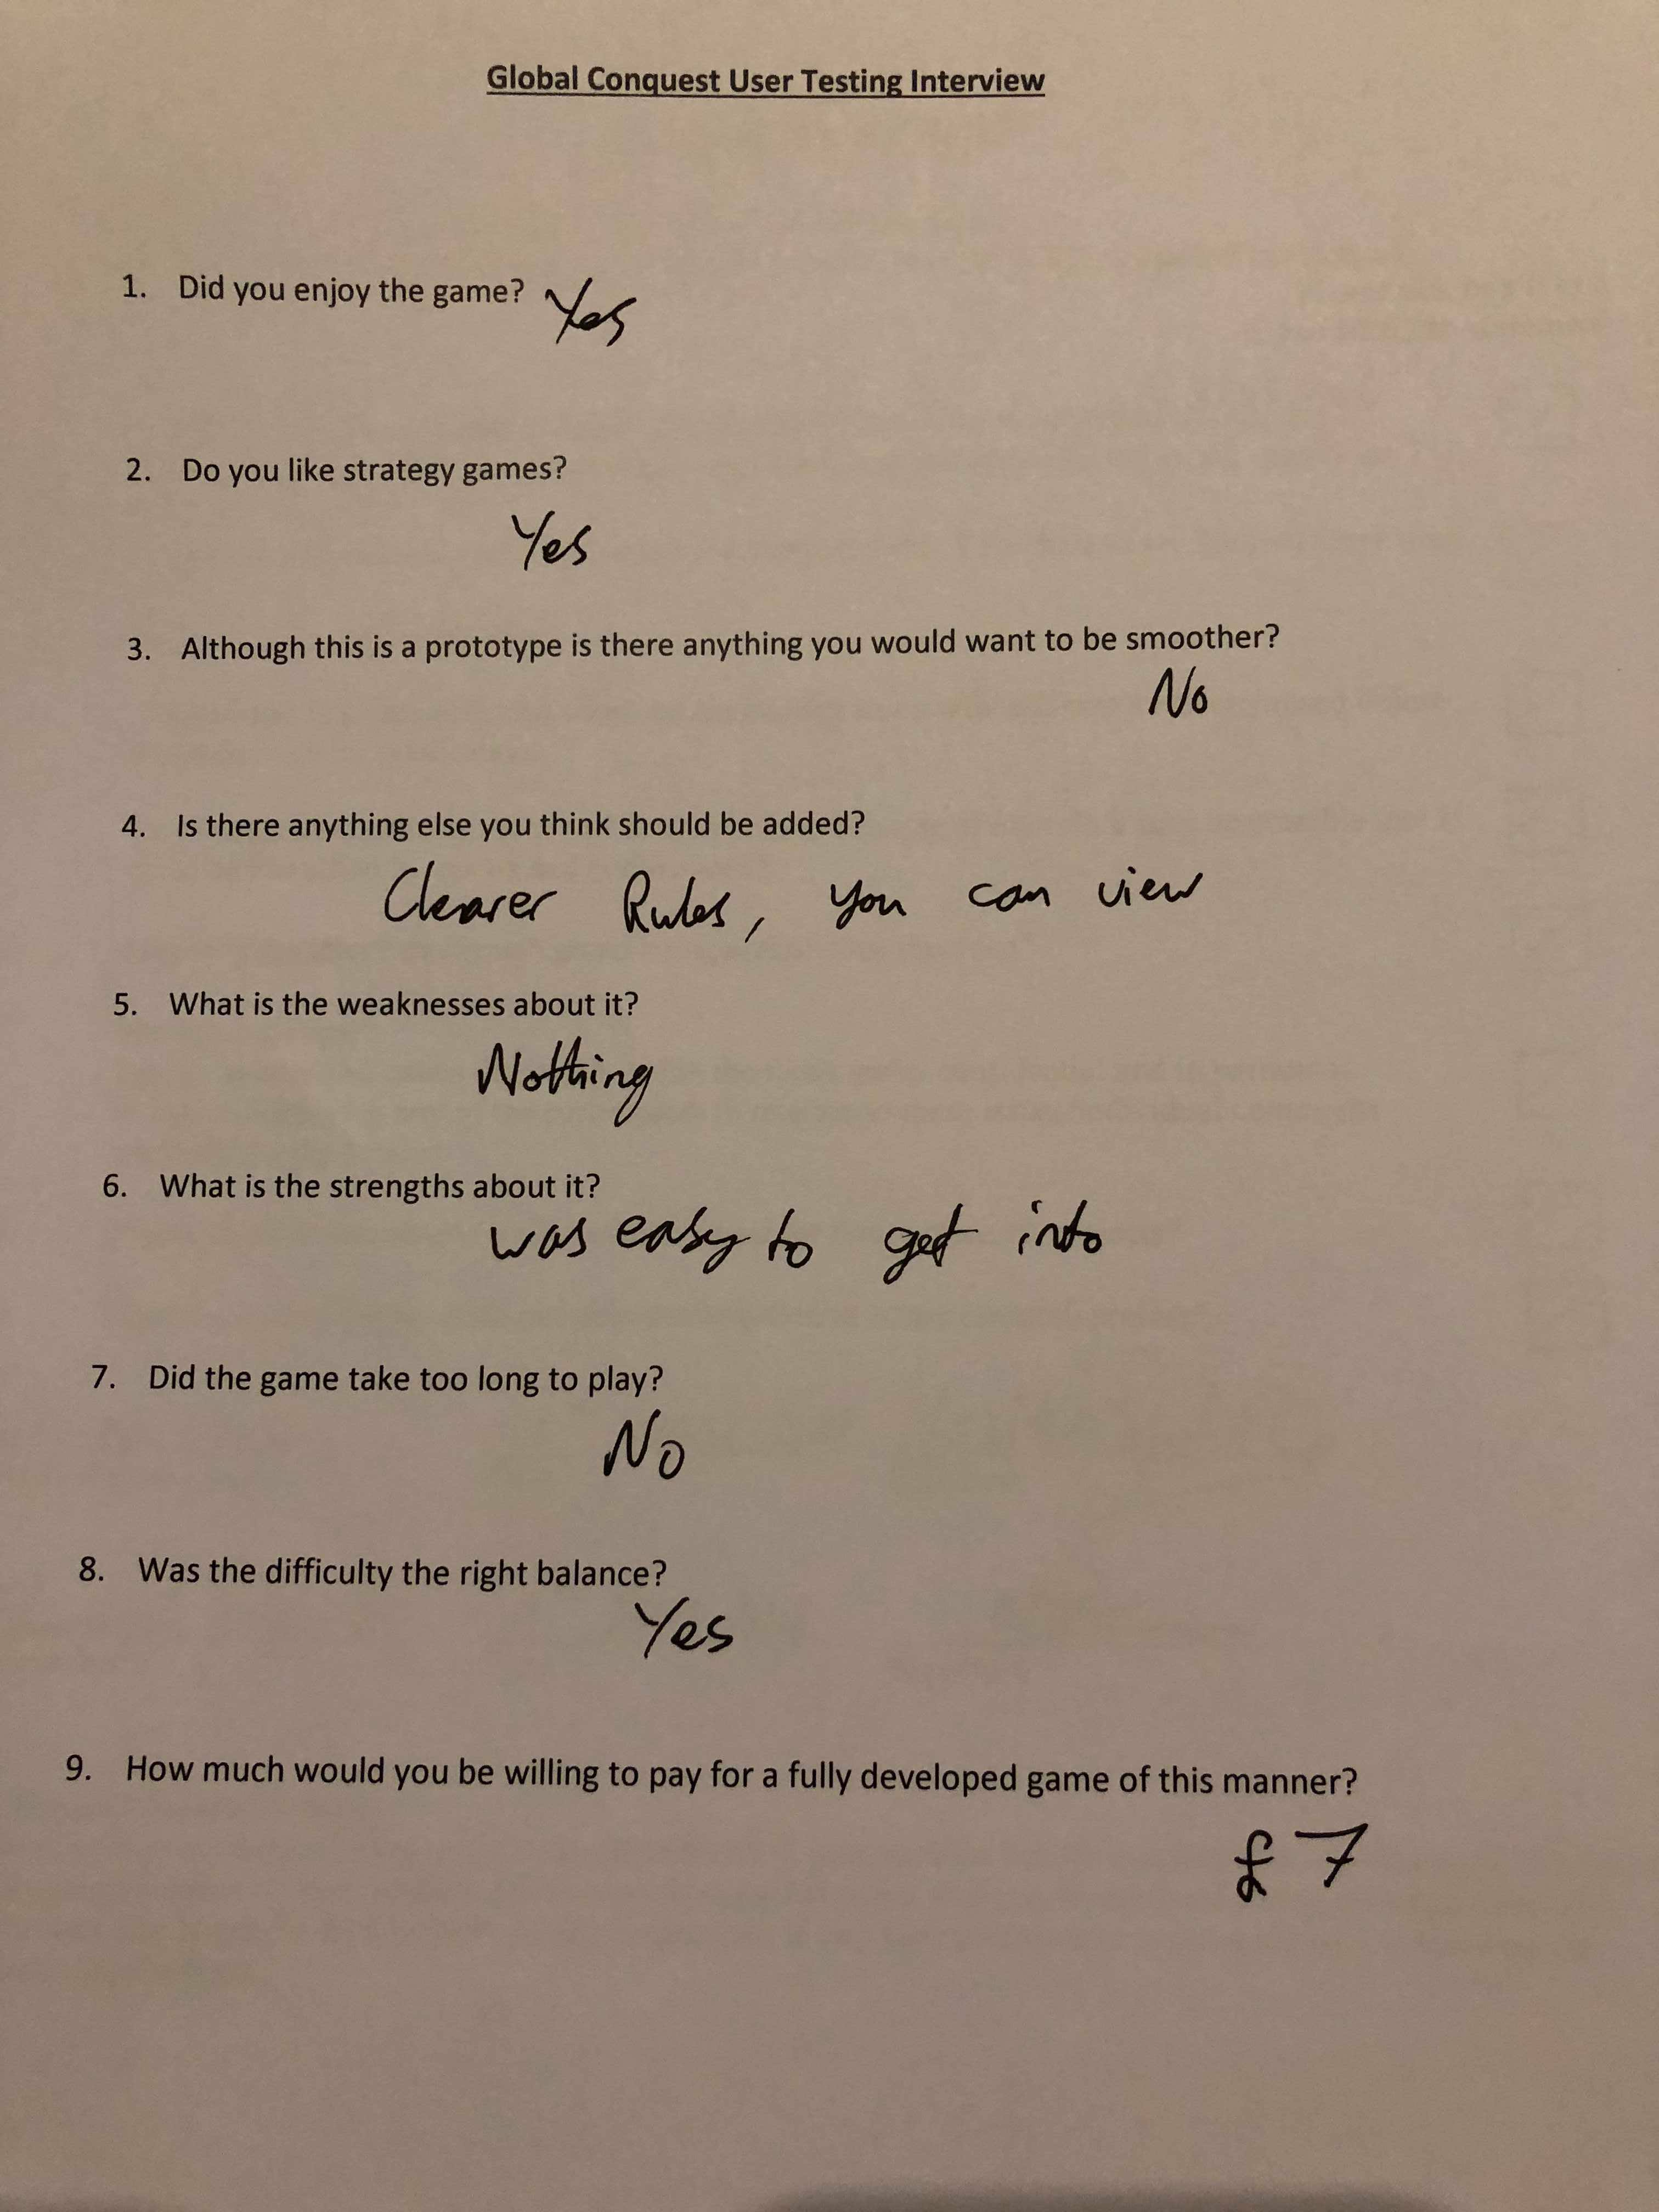 Global Conquest User Testing Interview
1. Did you enjoy the game? Yes
2. Do you like strategy games?
Yes
3. Although this is a prototype is there anything you would want to be smoother?
No
4. Is there anything else you think should be added?
Clearer Rules, you can view
5. What is the weaknesses about it?
Nothing
6. What is the strengths about it?
was easy to get into
7. Did the game take too long to play?
No
8. Was the difficulty the right balance?
Yes
9. How much would you be willing to pay for a fully developed game of this manner?
£7